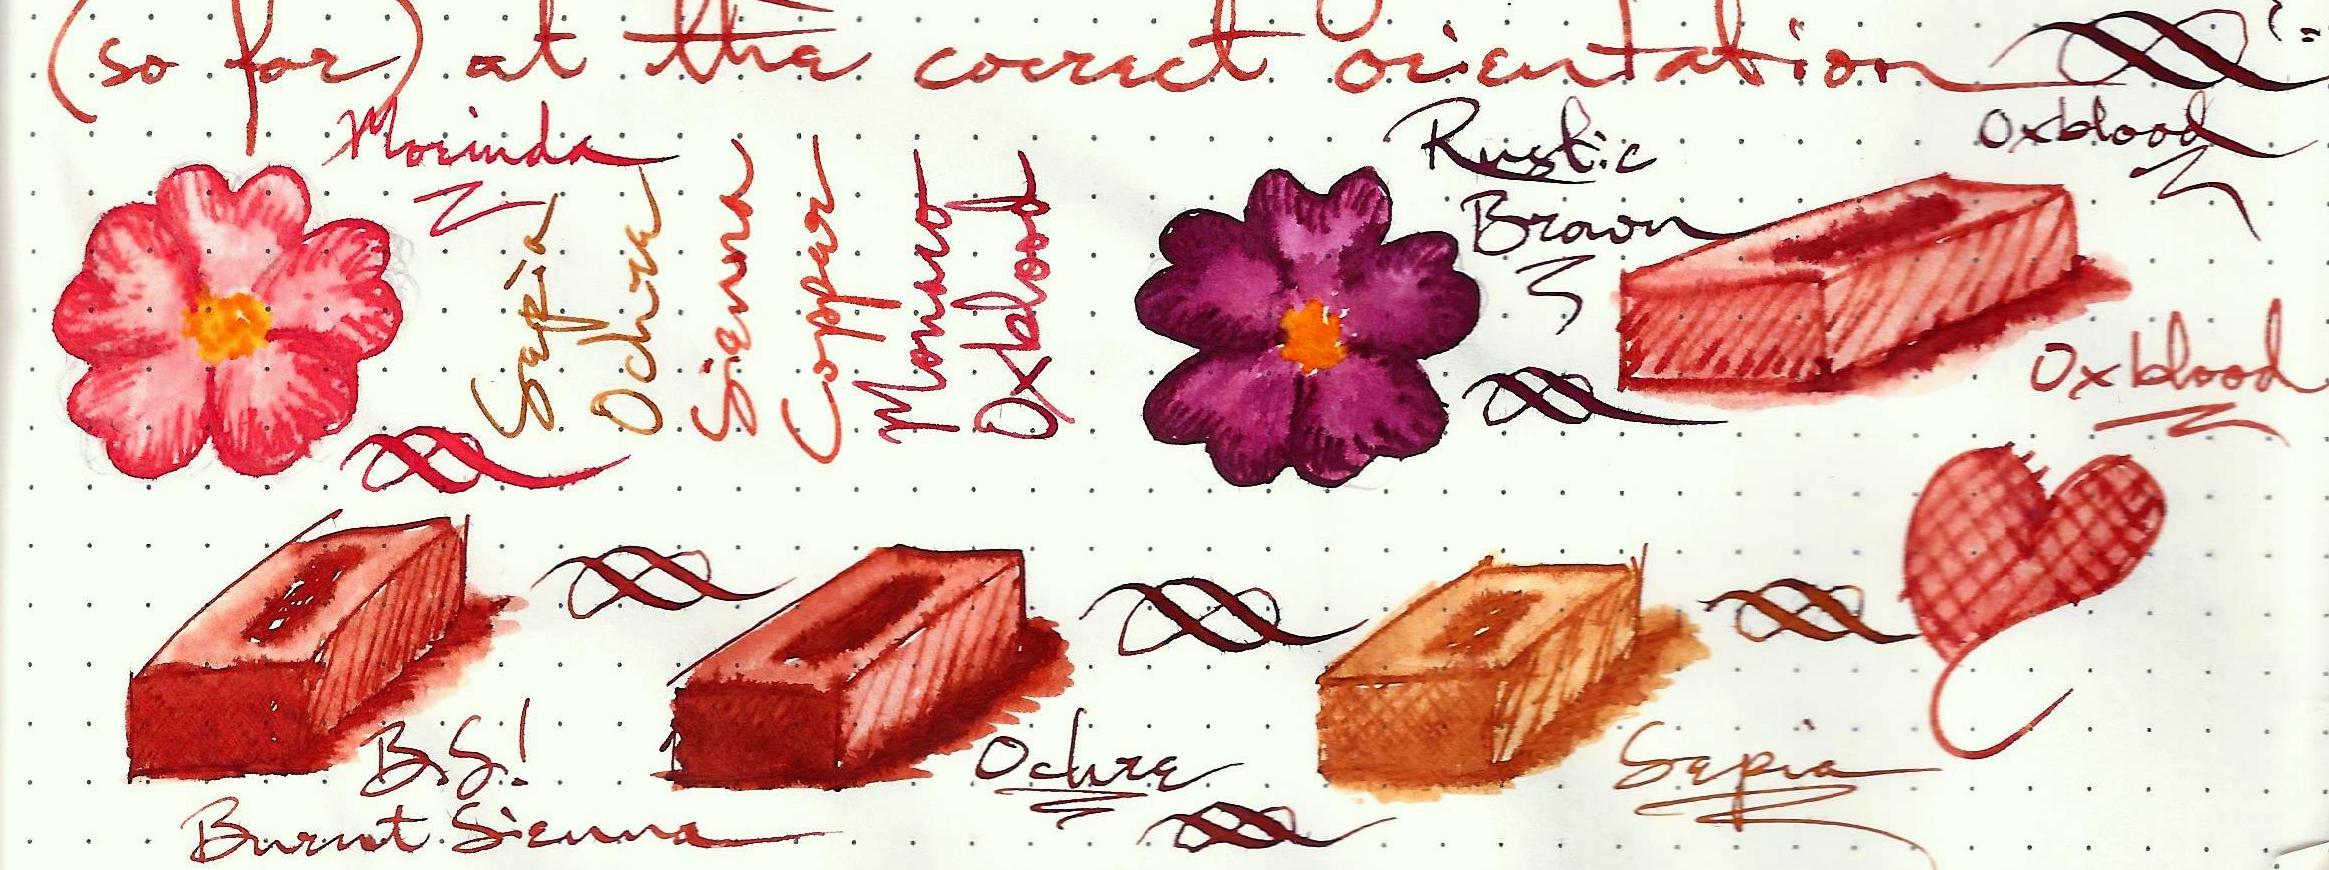 (so far) at the correct orientation
Morinda
Sepia
Ochre
Sienna
Copper
Monaco
Oxblood
Rustic
Brown
Oxblood
Oxblood
B.S!
Burnt Sienna
Ochre
Sepia